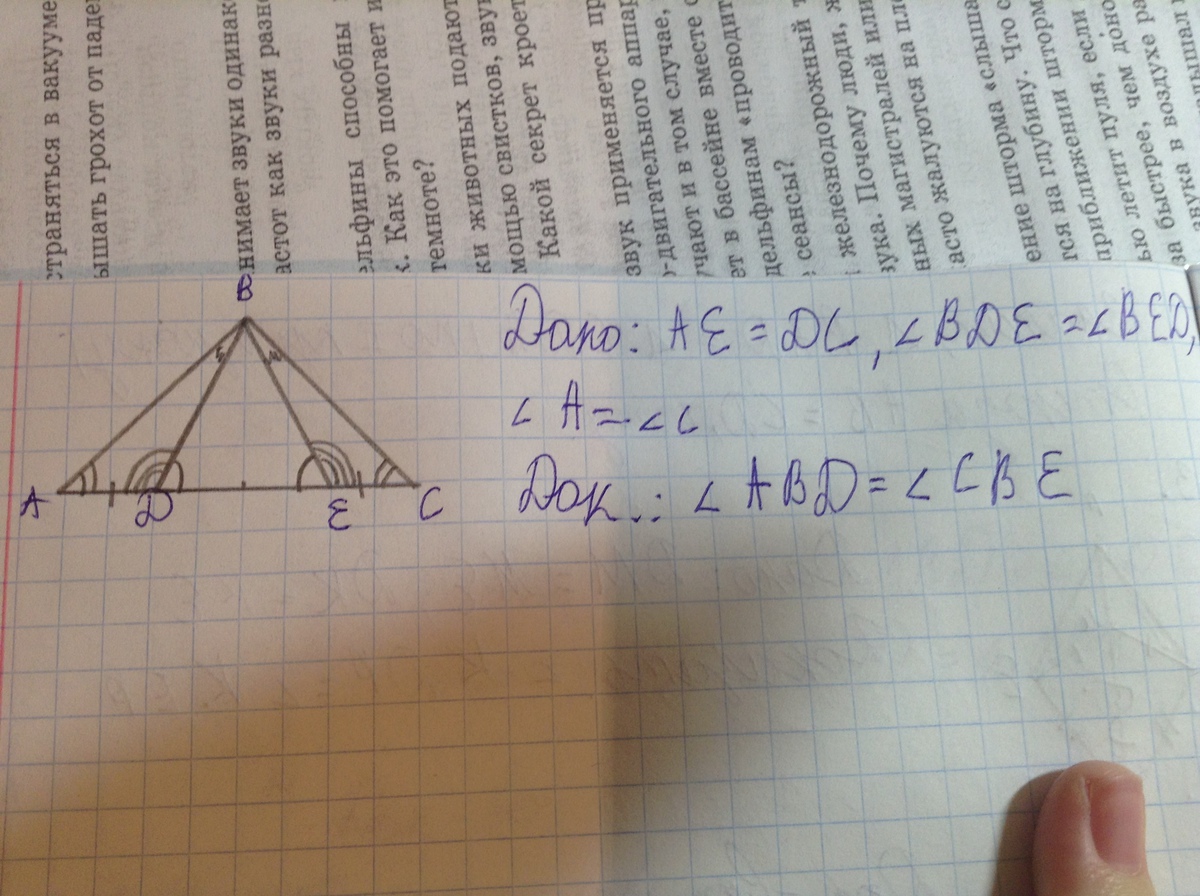 страняться в вакууме
ышать грохот от паде
нимает звуки одинак
астот как звуки разн
ельфины способны
Как это помогает
темноте?
ки животных подают
мощью свистков, зву
Какой секрет кроет
звук применяется пр
двигательного аппар
чают и в том случае,
ет в бассейне вместе с
дельфинам «проводит
сеансы?
железнодорожный
ука. Почему люди, ж
ных магистралей или
асто жалуются на пл
ение шторма «слыша
тся на глубину. Что с
приближении шторм
ью летит пуля, если
за быстрее, чем доно
звука в воздухе ра
B
A D E C
Дано: AE = DC, ∠BDE = ∠BED,
∠A = ∠C
Док.: ∠ABD = ∠CBE